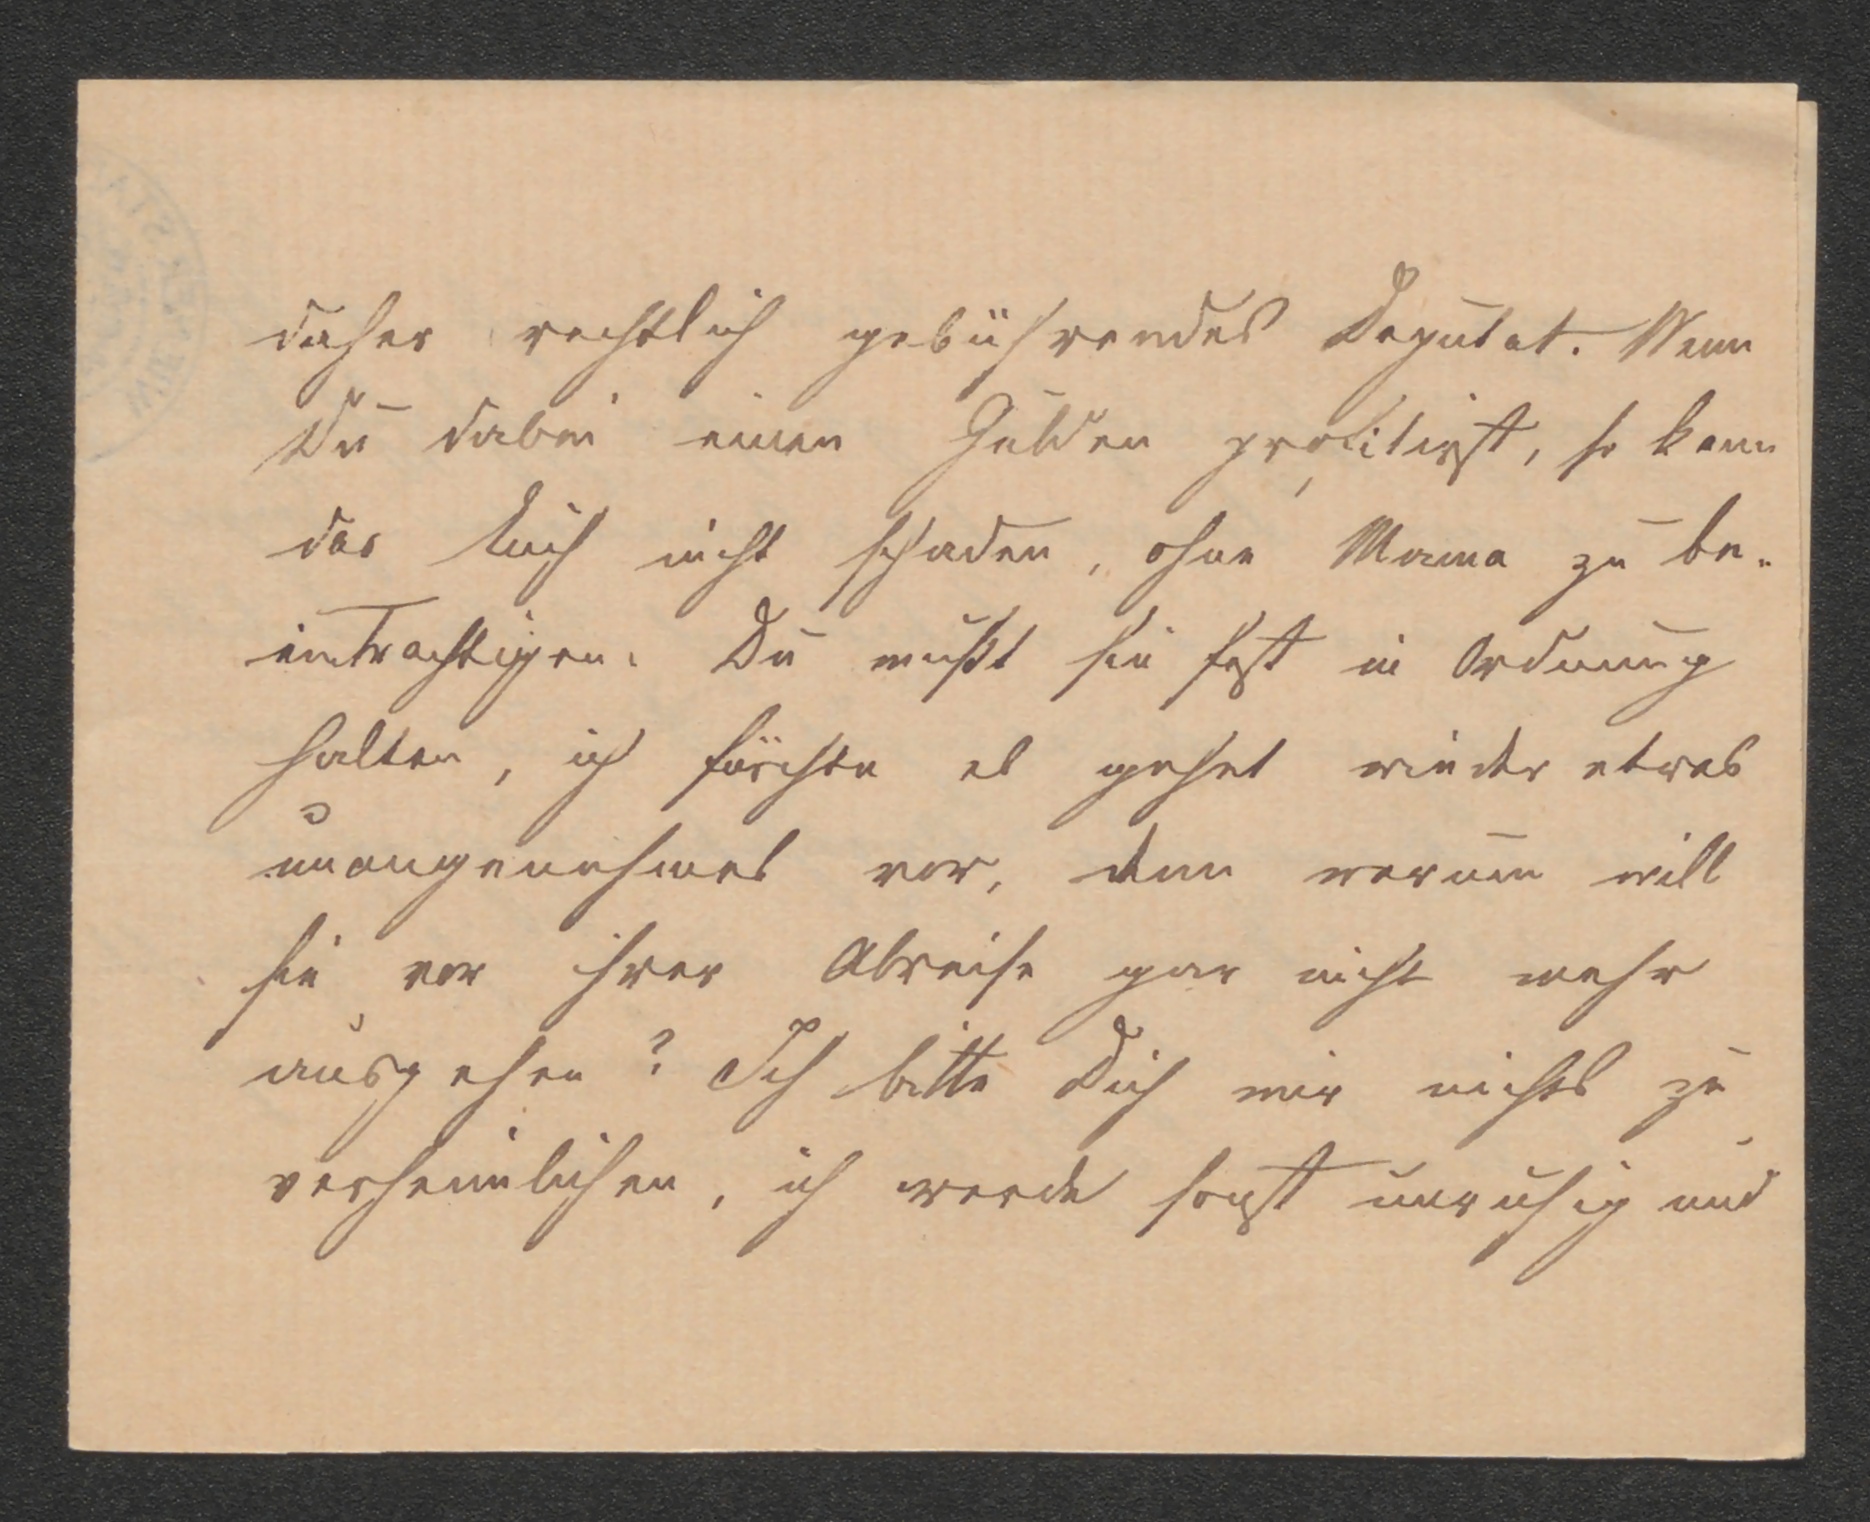 daher rechtlich gebührendes Deputat. Wenn
Du dabei einen Gulden profitirst, so kann
das Euch nicht schaden, ohne Mama zu be-
einträchtigen. Du mußt sie fest in Ordnung
halten, ich fürchte es gehet wieder etwas
unangenehmes vor, denn warum will
sie vor ihrer Abreise gar nicht mehr
ausgehen? Ich bitte Dich mir nichts zu
verheimlichen, ich werde sonst unruhig und